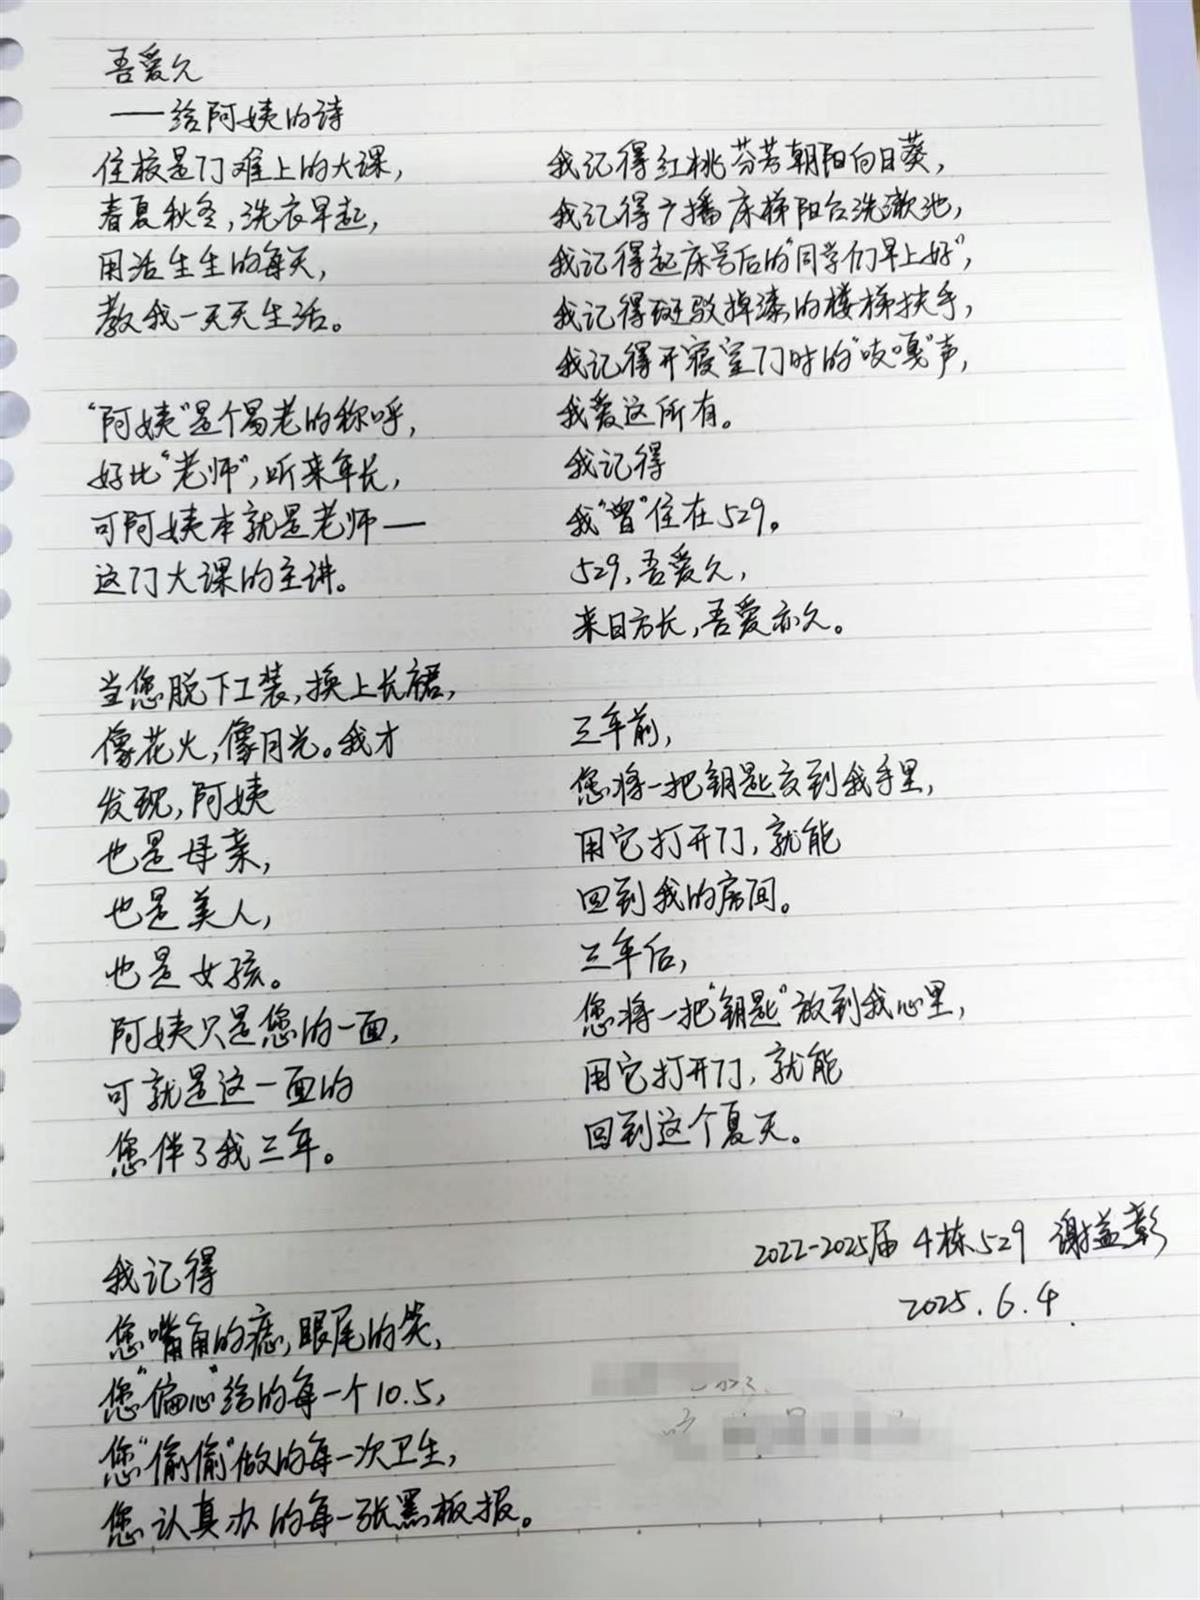 吾爱久
——给阿姨的诗
住校是门难上的大课，
春夏秋冬，洗衣早起，
用活生生的每天，
教我一天天生活。
“阿姨”是个易老的称呼，
好比“老师”，听来年长，
可阿姨本就是老师——
这门大课的主讲。
当您脱下工装，换上长裙，
像花火，像月光。我才
发现，阿姨
也是母亲，
也是美人，
也是女孩。
阿姨只是您的一面，
可就是这一面的
您伴了我三年。
我记得
您嘴角的痣，眼尾的笑，
您“偏心”给的每一个10.5，
您“偷偷”做的每一次卫生，
您认真办的每一张黑板报。
我记得红桃芬芳朝阳向日葵，
我记得广播床梯阳台洗漱池，
我记得起床号后的“同学们早上好”，
我记得斑驳掉漆的楼梯扶手，
我记得开寝室门时的“吱嘎”声，
我爱这所有。
我记得
我“曾”住在529。
529，吾爱久，
来日方长，吾爱亦久。
三年前，
您将一把钥匙交到我手里，
用它打开门，就能
回到我的房间。
三年后，
您将一把“钥匙”放到我心里，
用它打开门，就能
回到这个夏天。
2022-2025届 4栋529 谢益彰
2025.6.4.